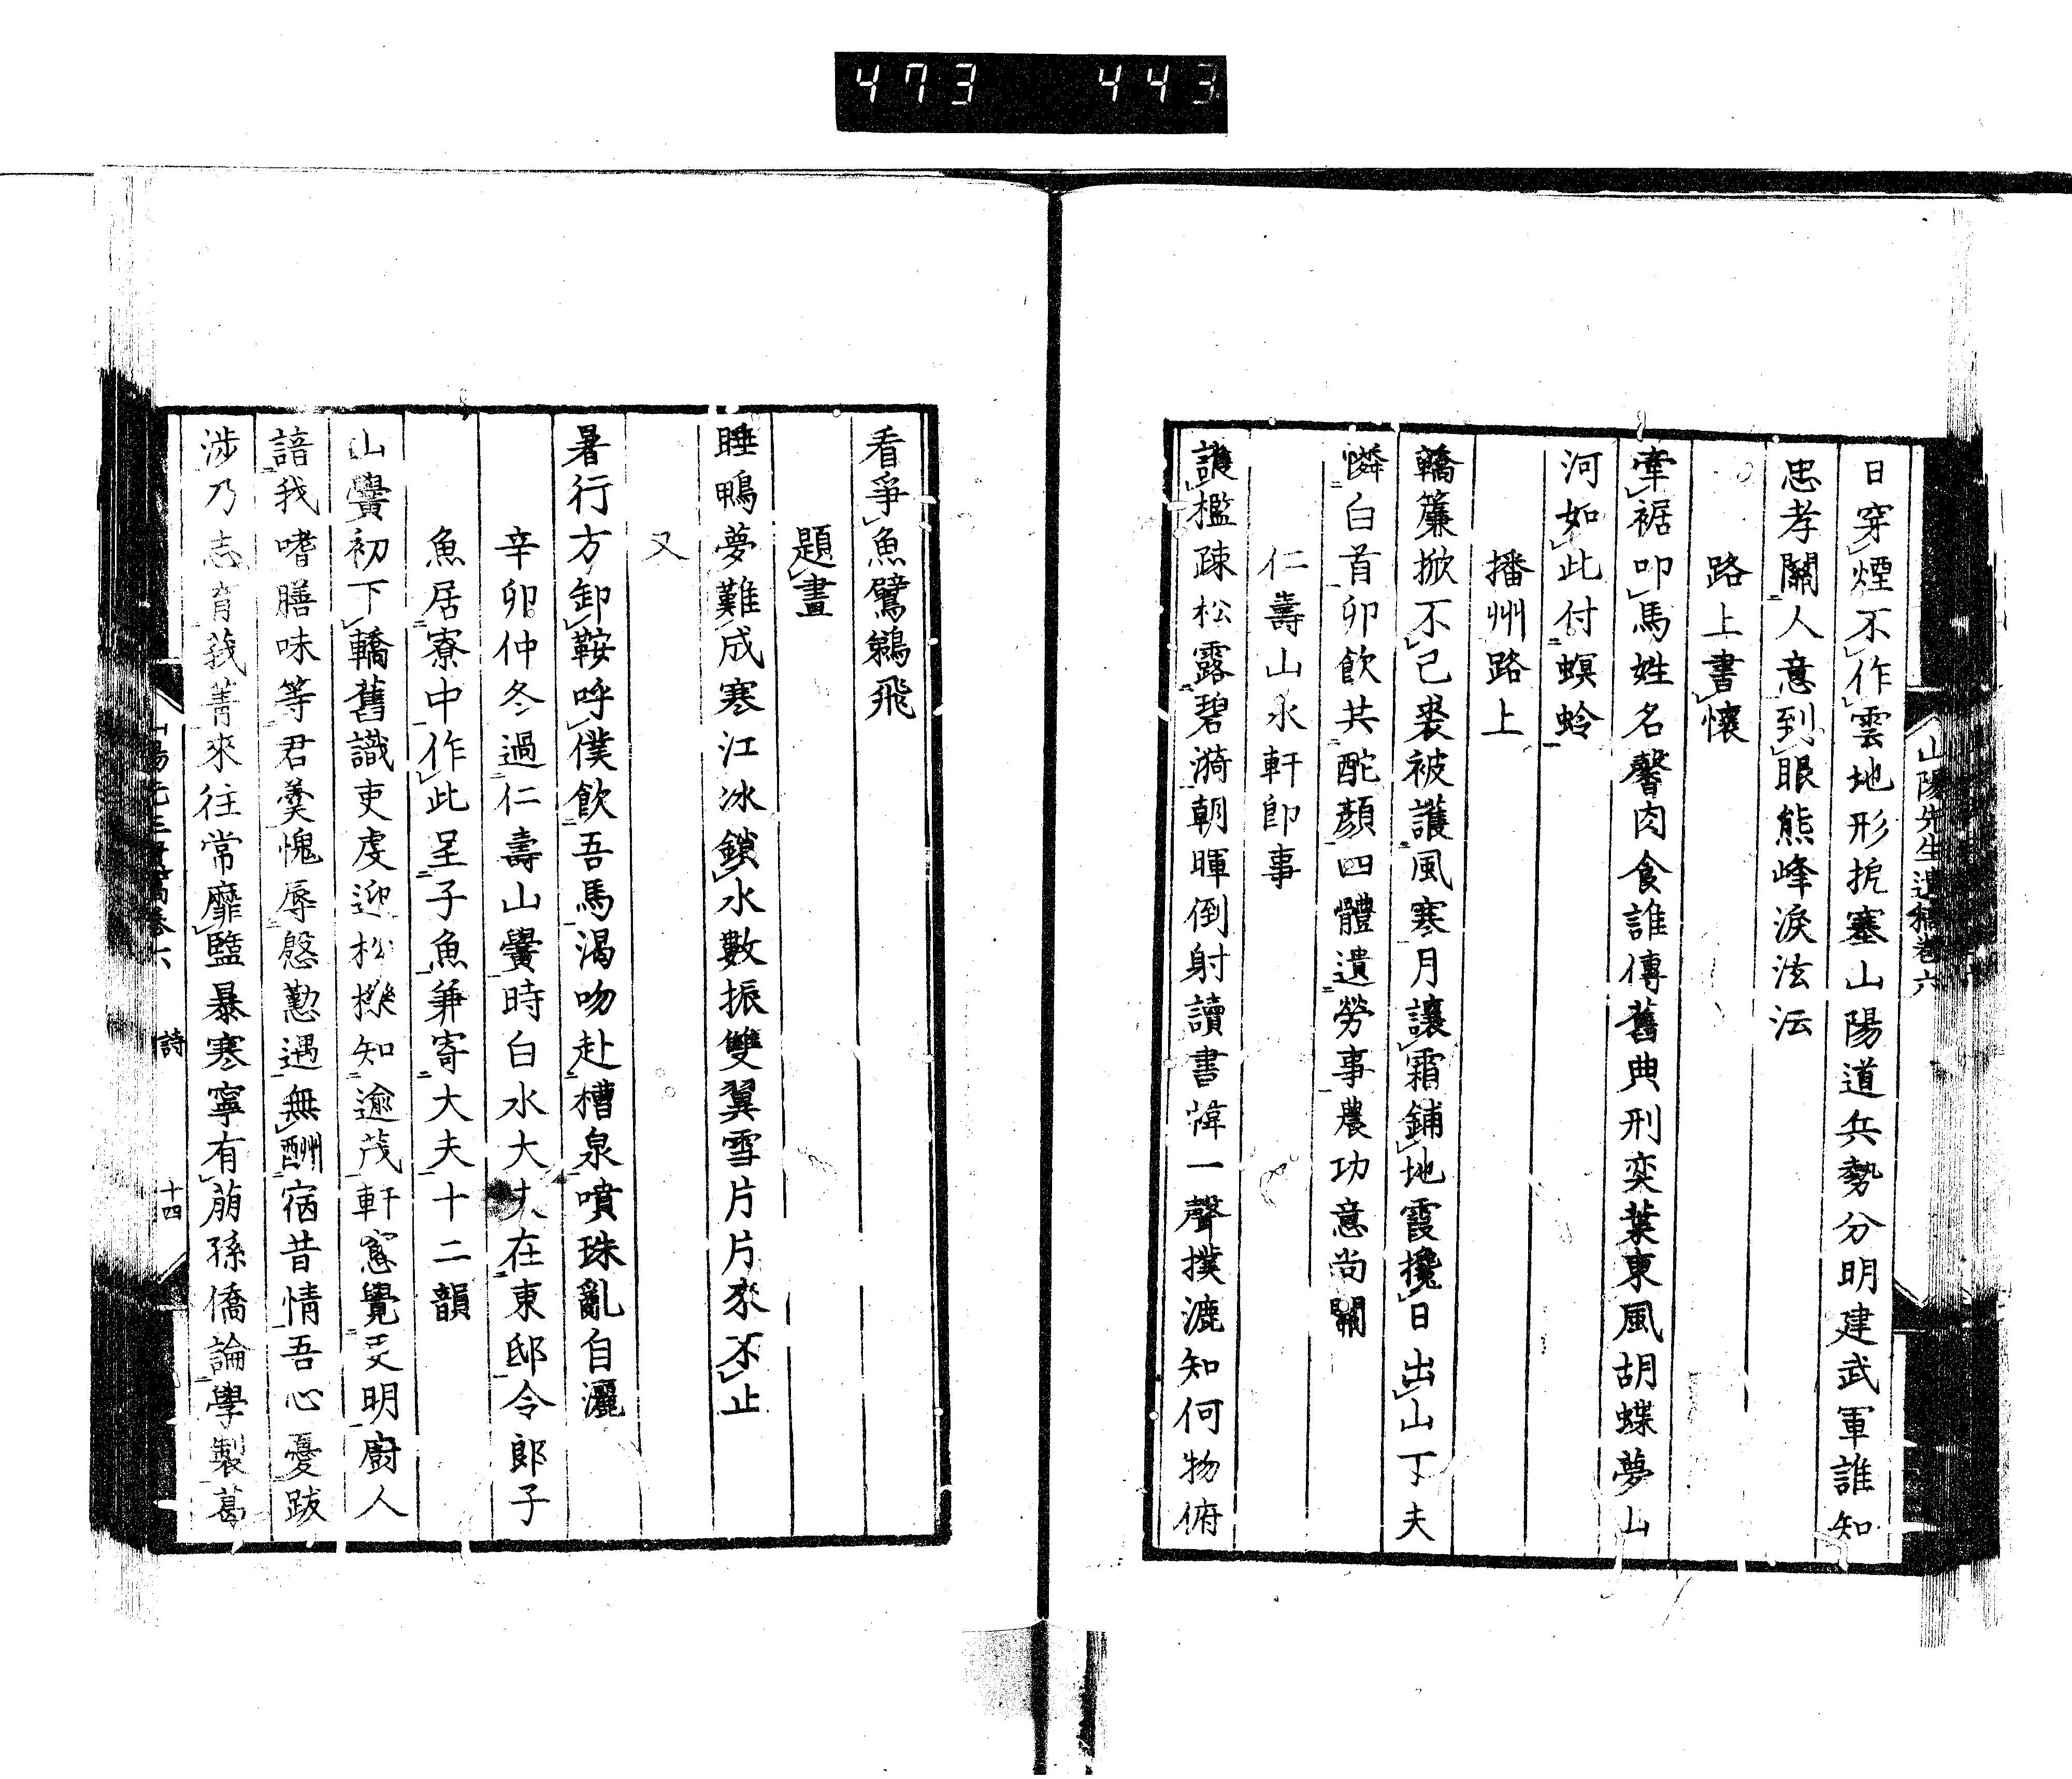 473 443
山陽先生遺稿卷六
日穿煙不作雲地形扼塞山陽道兵勢分明建武軍誰知
忠孝關人意到眼熊峰淚泫沄
路上書懷
牽裾叩馬姓名馨肉食誰傳舊典刑奕葉東風胡蝶夢山
河如此付螟蛉
播州路上
轎簾掀不已裘被護風寒月讓霜鋪地霞攙日出山丁夫
憐白首卯飲共酡顏四體遺勞事農功意尚關
仁壽山水軒即事
護檻疎松露碧漪朝暉倒射讀書幃一聲撲漉知何物俯
看爭魚鷺鷀飛
題畫
睡鴨夢難成寒江冰鎖水數振雙翼雪片片來不止
又
暑行方卸鞍呼僕飲吾馬渴吻赴槽泉噴珠亂自灑
辛卯仲冬過仁壽山黌時白水大夫在東邸令郎子
魚居寮中作此呈子魚兼寄大夫十二韻
山黌初下轎舊識吏虔迎松樅知逾茂軒窓覺更明廚人
諳我嗜膳味等君羹愧辱慇懃遇無酬宿昔情吾心憂跋
涉乃志育莪菁來往常靡盬暴寒寧有萠孫僑論學製葛
詩 十四